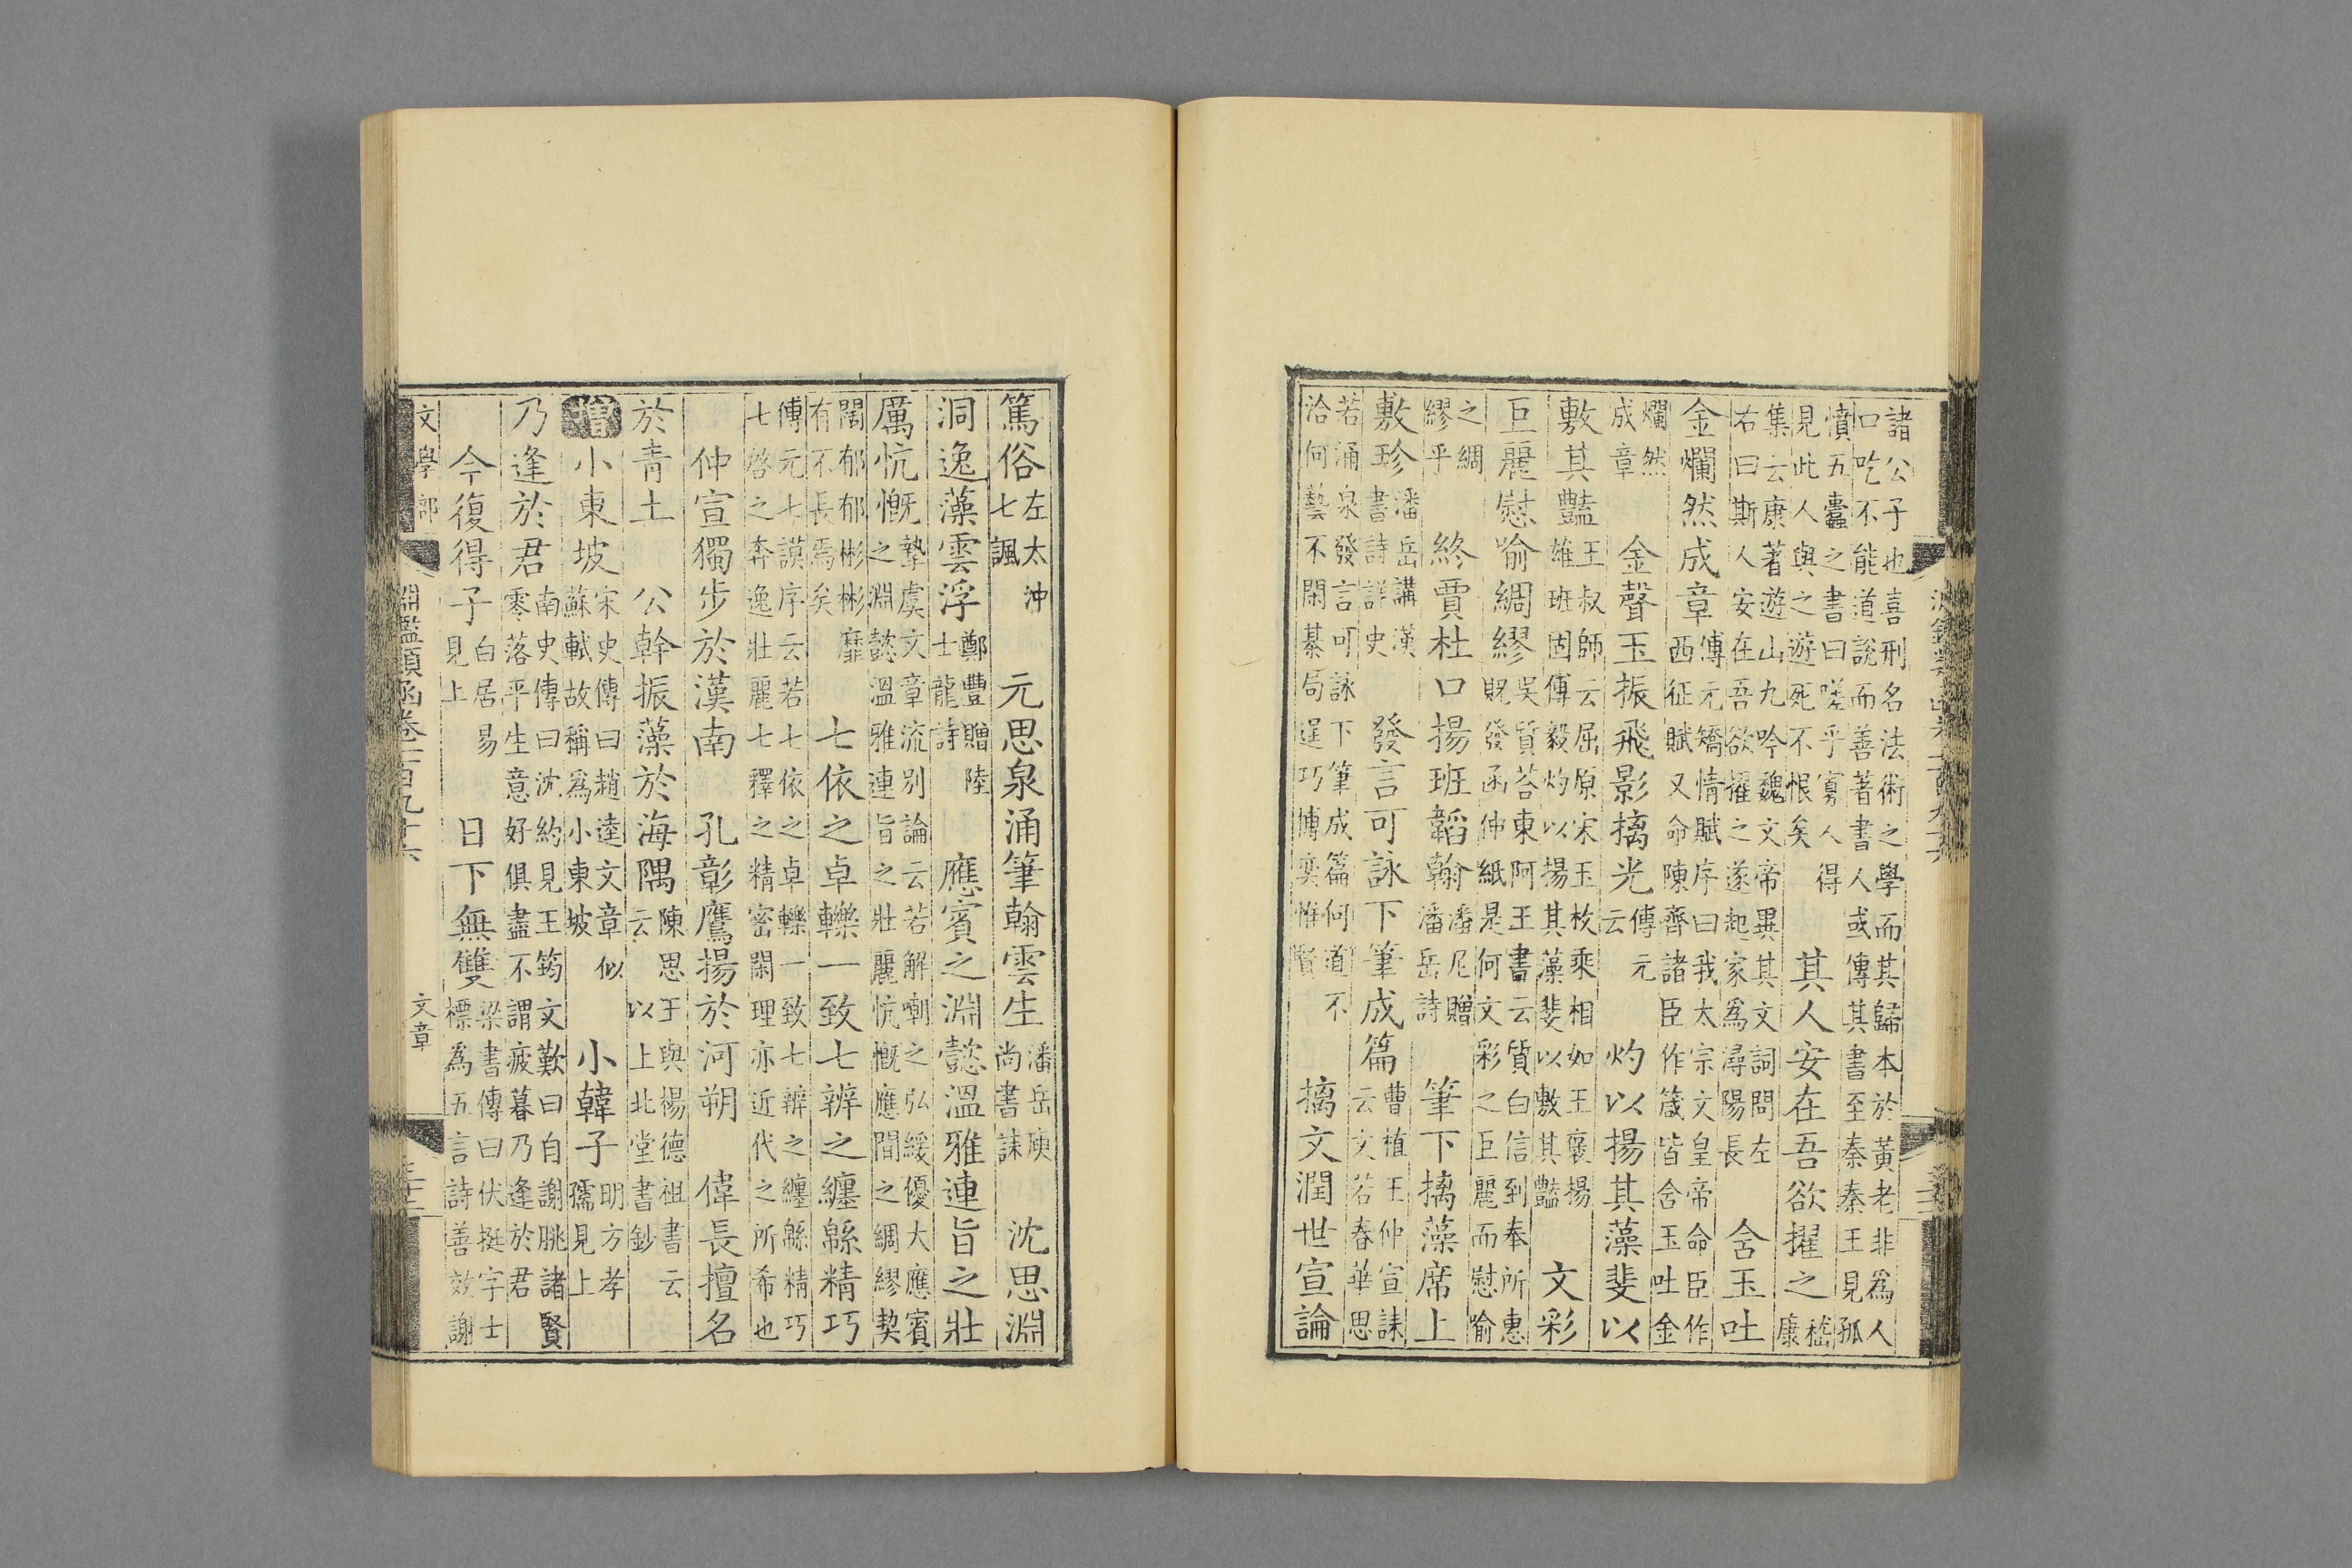 諸公子也喜刑名法術之學而其歸本於黃老非為人
口吃不能道說而善著書人或傳其書至秦秦王見孤
憤五蠹之書曰嗟乎寡人得見此人與之遊死不恨矣 其人安在吾欲擢之 嵇康
集云康著遊山九吟魏文帝異其文詞問左右曰斯人安在吾欲擢之遂起家為潯陽長 含玉吐
金爛然成章 傅元矯情賦序曰我太宗文皇帝命臣作西征賦又命陳齊諸臣作箴皆含玉吐金
爛然成章 金聲玉振飛影摛光 傅元云 灼以揚其藻斐以
敷其豔 王叔師云屈原宋玉枚乘相如王褒揚雄班固傅毅灼以揚其藻斐以敷其豔 文彩
巨麗慰喻綢繆 吳質荅東阿王書云質白信到奉所惠貺發函伸紙是何文彩之巨麗而慰喻
之綢繆乎 終賈杜口揚班韜翰 潘尼贈潘岳詩 筆下摛藻席上
敷珍 潘岳講漢書詩詳史 發言可詠下筆成篇 曹植王仲宣誄云文若春華思
若涌泉發言可詠下筆成篇何道不洽何藝不閑棊局逞巧博奕惟賢 摛文潤世宣論
篤俗 左太沖七諷 元思泉涌筆翰雲生 潘岳庾尚書誄 沈思淵
洞逸藻雲浮 鄭豐贈陸士龍詩 應賓之淵懿溫雅連旨之壯
厲忼慨 摯虞文章流別論云若解嘲之弘緩優大應賓之淵懿溫雅連旨之壯麗忼慨應間之綢繆契
闊郁郁彬彬靡有不長焉矣 七依之卓轢一致七辨之纏緜精巧
傅元七謨序云若七依之卓轢一致七辨之纏緜精巧七啓之奔逸壯麗七釋之精密閑理亦近代之所希也
仲宣獨步於漢南 孔彰鷹揚於河朔 偉長擅名
於青土 公幹振藻於海隅 陳思王與楊德祖書云云 以上北堂書鈔
增 小東坡 宋史傳曰趙逵文章似蘇軾故稱為小東坡 小韓子 明方孝孺見上
乃逢於君 南史傳曰沈約見王筠文歎曰自謝朓諸賢零落平生意好俱盡不謂疲暮乃逢於君
今復得子 白居易見上 日下無雙 梁書傳曰伏挺字士標為五言詩善效謝
文學部 淵鑑類函卷一百九十六 文章